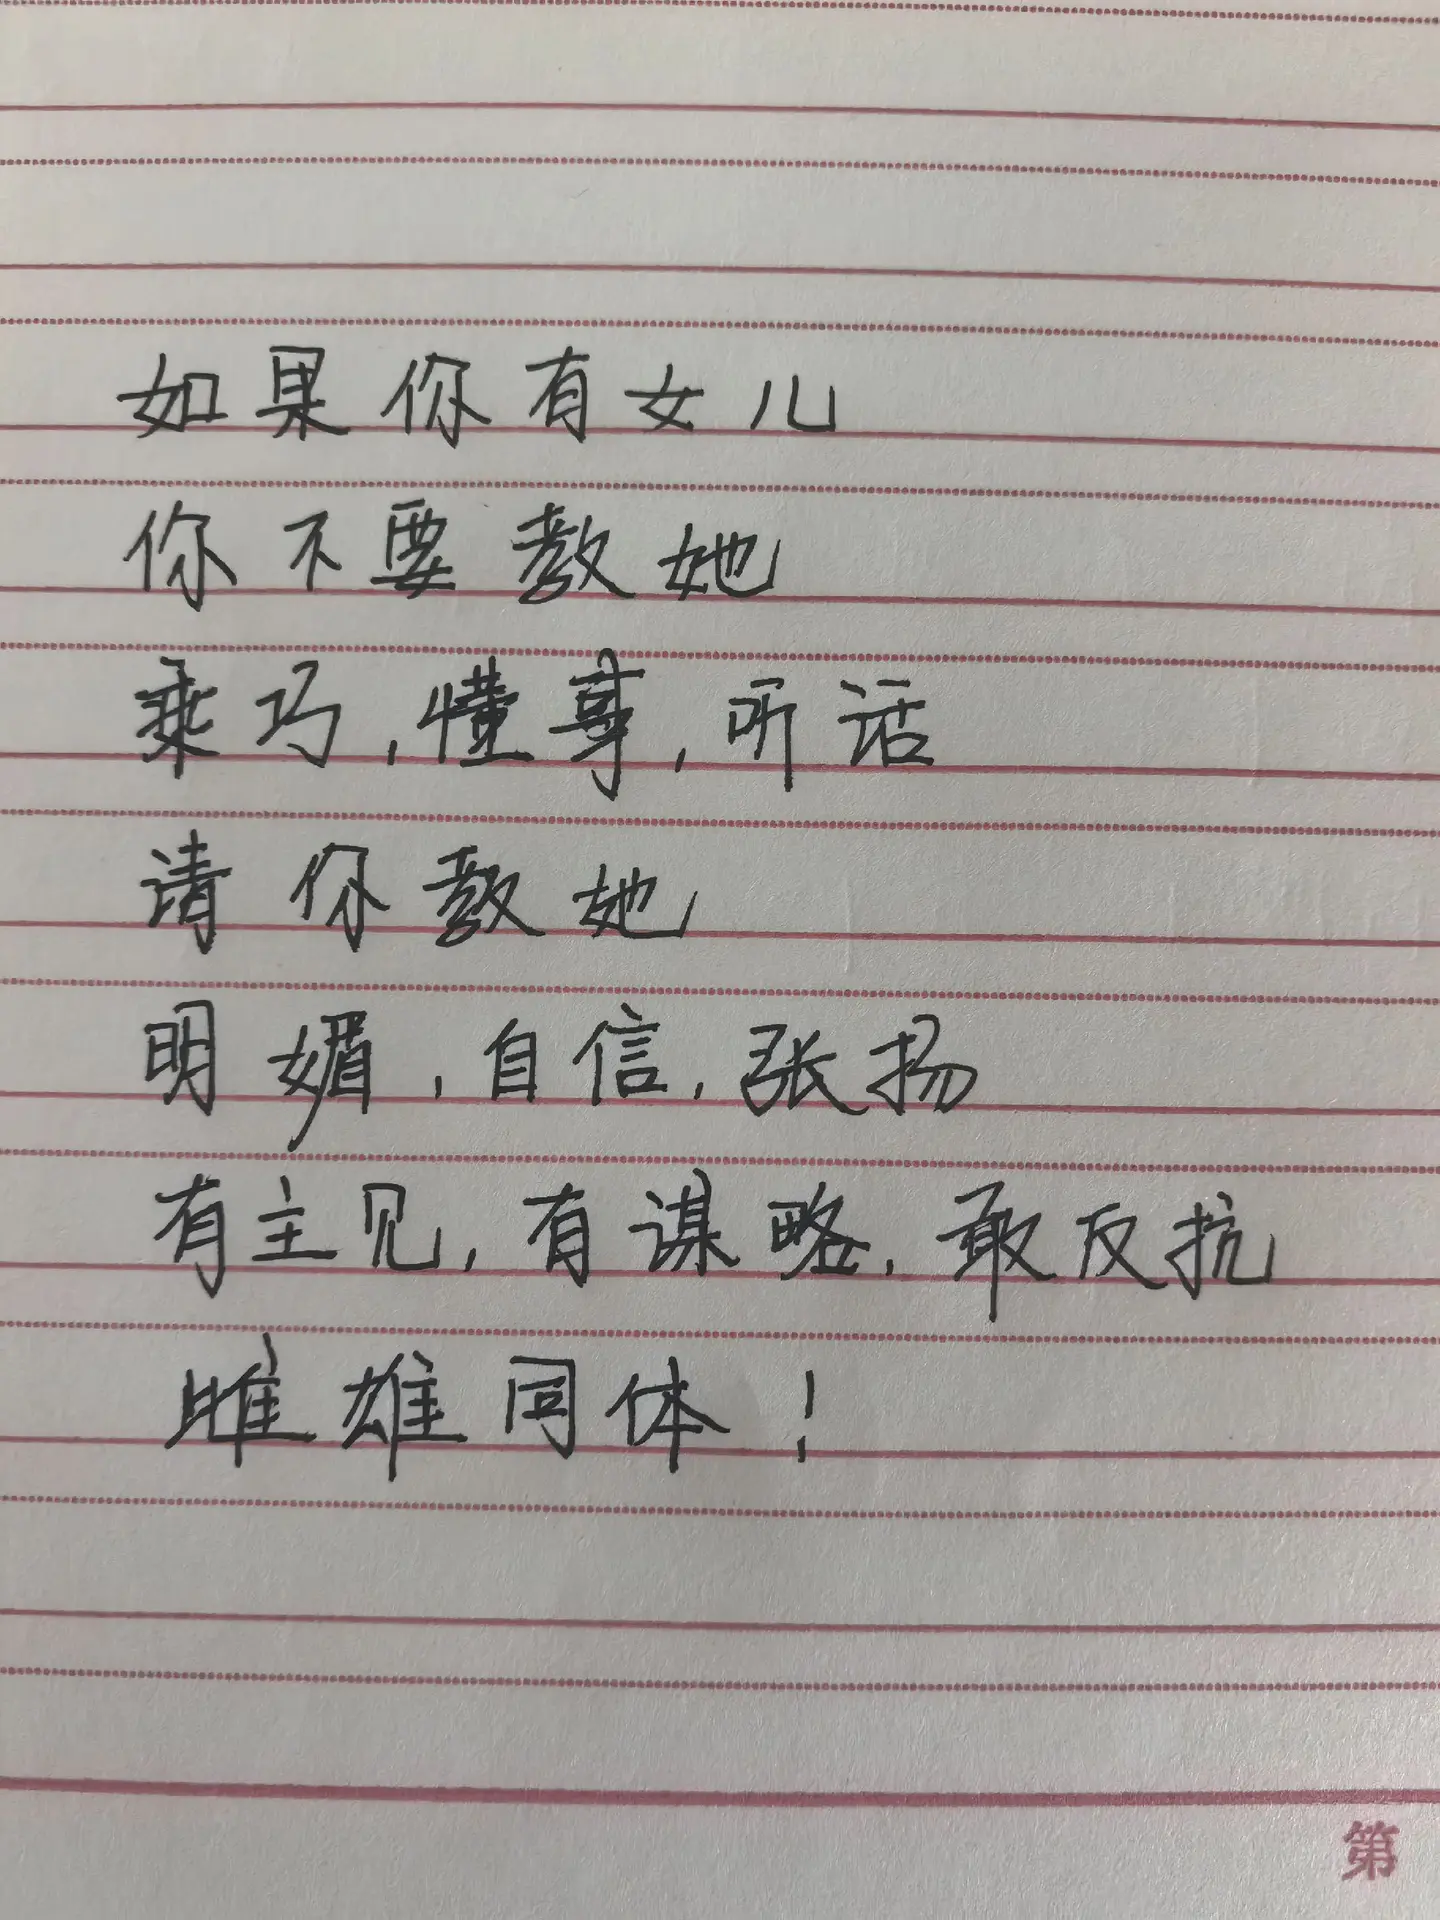 如果你有女儿
你不要教她
乖巧,懂事,听话
请你教她
明媚,自信,张扬
有主见,有谋略,敢反抗
雌雄同体!
第